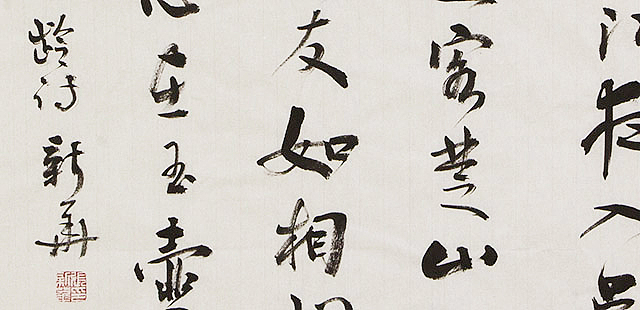 江夜入
客楚山
友如相
心在玉壶
龄诗 新华